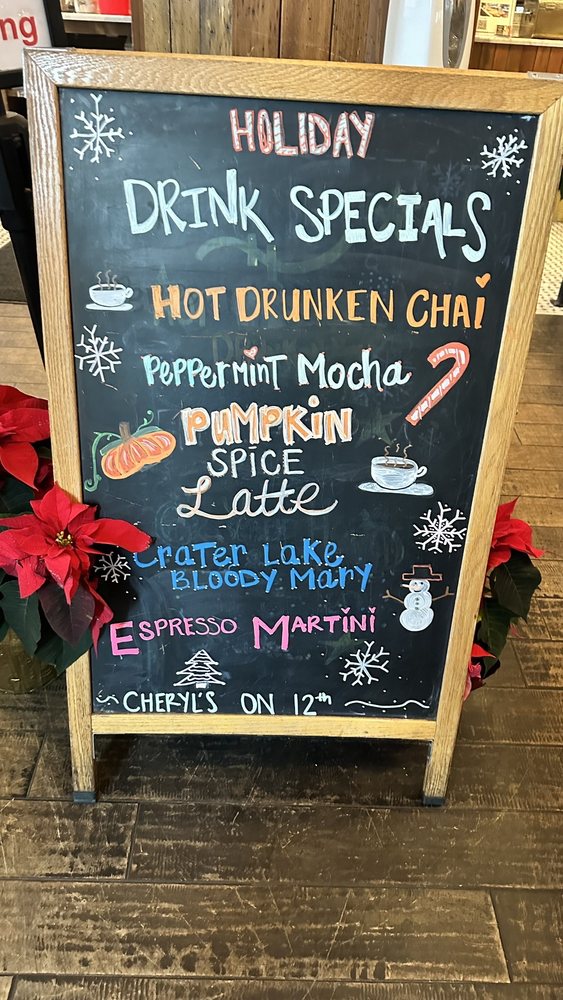 ng
HOLIDAY
DRINK SPECIALS
HOT DRUNKEN CHAI
PEPPERMINT MOCHA
PUMPKIN
SPICE
Latte
CRATER LAKE
BLOODY MARY
ESPRESSO MARTINI
CHERYL'S ON 12th